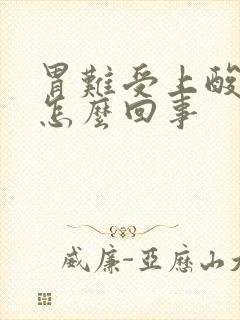 胃難受上酸
怎麼回事
威廉-亞歷山大